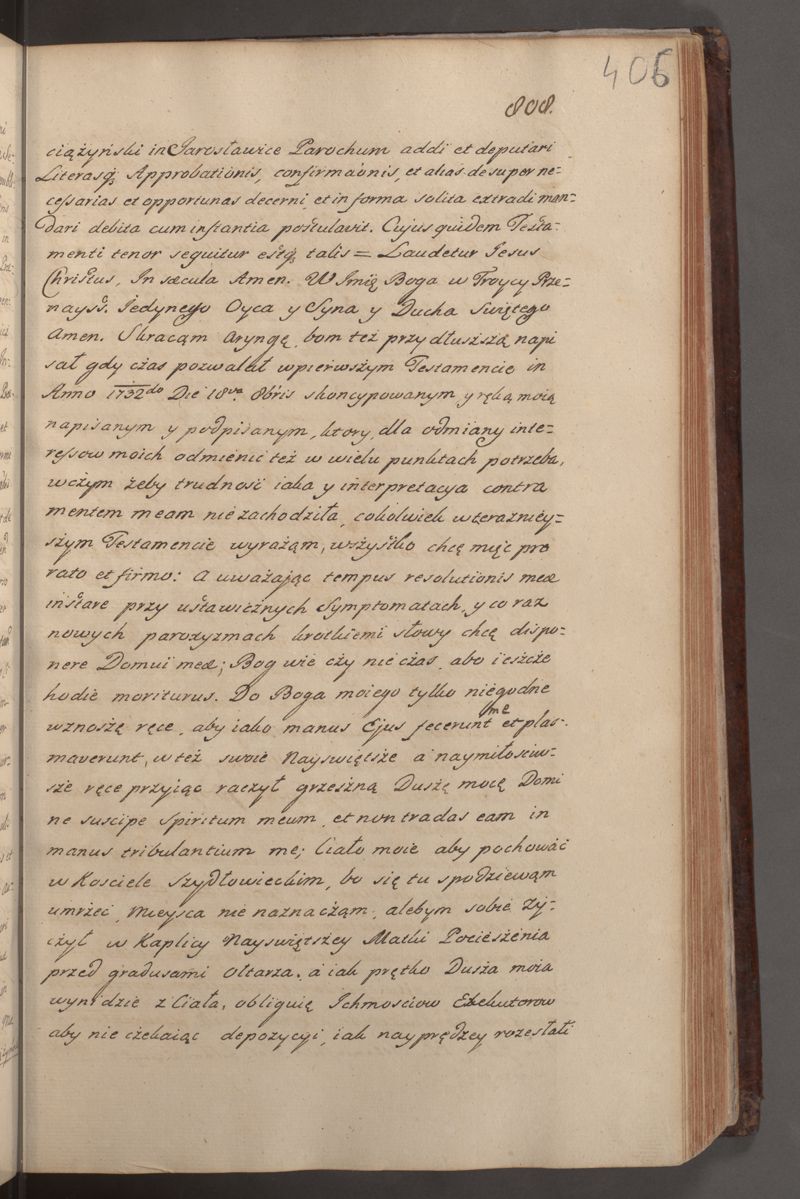 406
808.
ciążyński in Jarosławice Parochum addi et deputari
Literasq; Approbationis, confirmaōnis, et alias desuper ne=
cessarias et opportunas decerni, et in forma solita extradi man=
dari debita cum instantia postulavit. Cujus quidem Testa-
menti tenor sequitur estq; talis = Laudetur Jesus
Christus, In sæcula Amen. W Imię Boga w Troycy Prze=
nayśś. Jedynego Oyca y Syna y Ducha Swiętego
Amen. Skracąm Aryngę, bom też przydłuższą napi
sał gdy czas pozwalał w pierwszym Testamencie in
Anno 1732do Die 18va 8bris skoncypowanym y ręką moią
napisanym y podpisanym, ktory, dla odmiany inte=
ressow moich odmienic też w wielu punktach potrzeba,
w czym żeby trudnosć iaka y interpretacya contra
mentem meam nie zachodziła, cokolwiek w teraznìey=
szym Testamencie wyrażąm, wszystko chcę miec pro
rato et firmo: A uważając tempus resolutionis meæ
instare przy ustawicznych Symptomatach, y co raz
nowych paroxyzmach krotkiemi słowy chcę dispo=
nere Domui meæ; Bog wie czy nie czas, abo ieszcze
hodie moriturus. Do Boga moiego tylko niegodne
wznoszę ręce, aby iako manus Ejus fecerunt me et plas-
maverunt, w też swoie Nayswiętsze a naymiłosciw-
sze ręce przyiąc raczył grzeszną Duszę moię Domi
ne suscipe Spiritum meum, et non tradas eam in
manus tribulantium me; Ciało moie aby pochowáć
w Kosciele Szydłowieckim, bo się tu spodziewąm
umrzeć, Mieysca nie naznacząm, alebym sobie ży-
czył w Kaplicy Nayswiętszey Matki Pocieszenia
przed gradusami Ołtarza. a iak prętko Dusza moia
wynidzie z Ciała, obliguię Ichmosciow Exekutorow
aby nie czekaiąc depozycyi, iak nayprędzey rozesłali